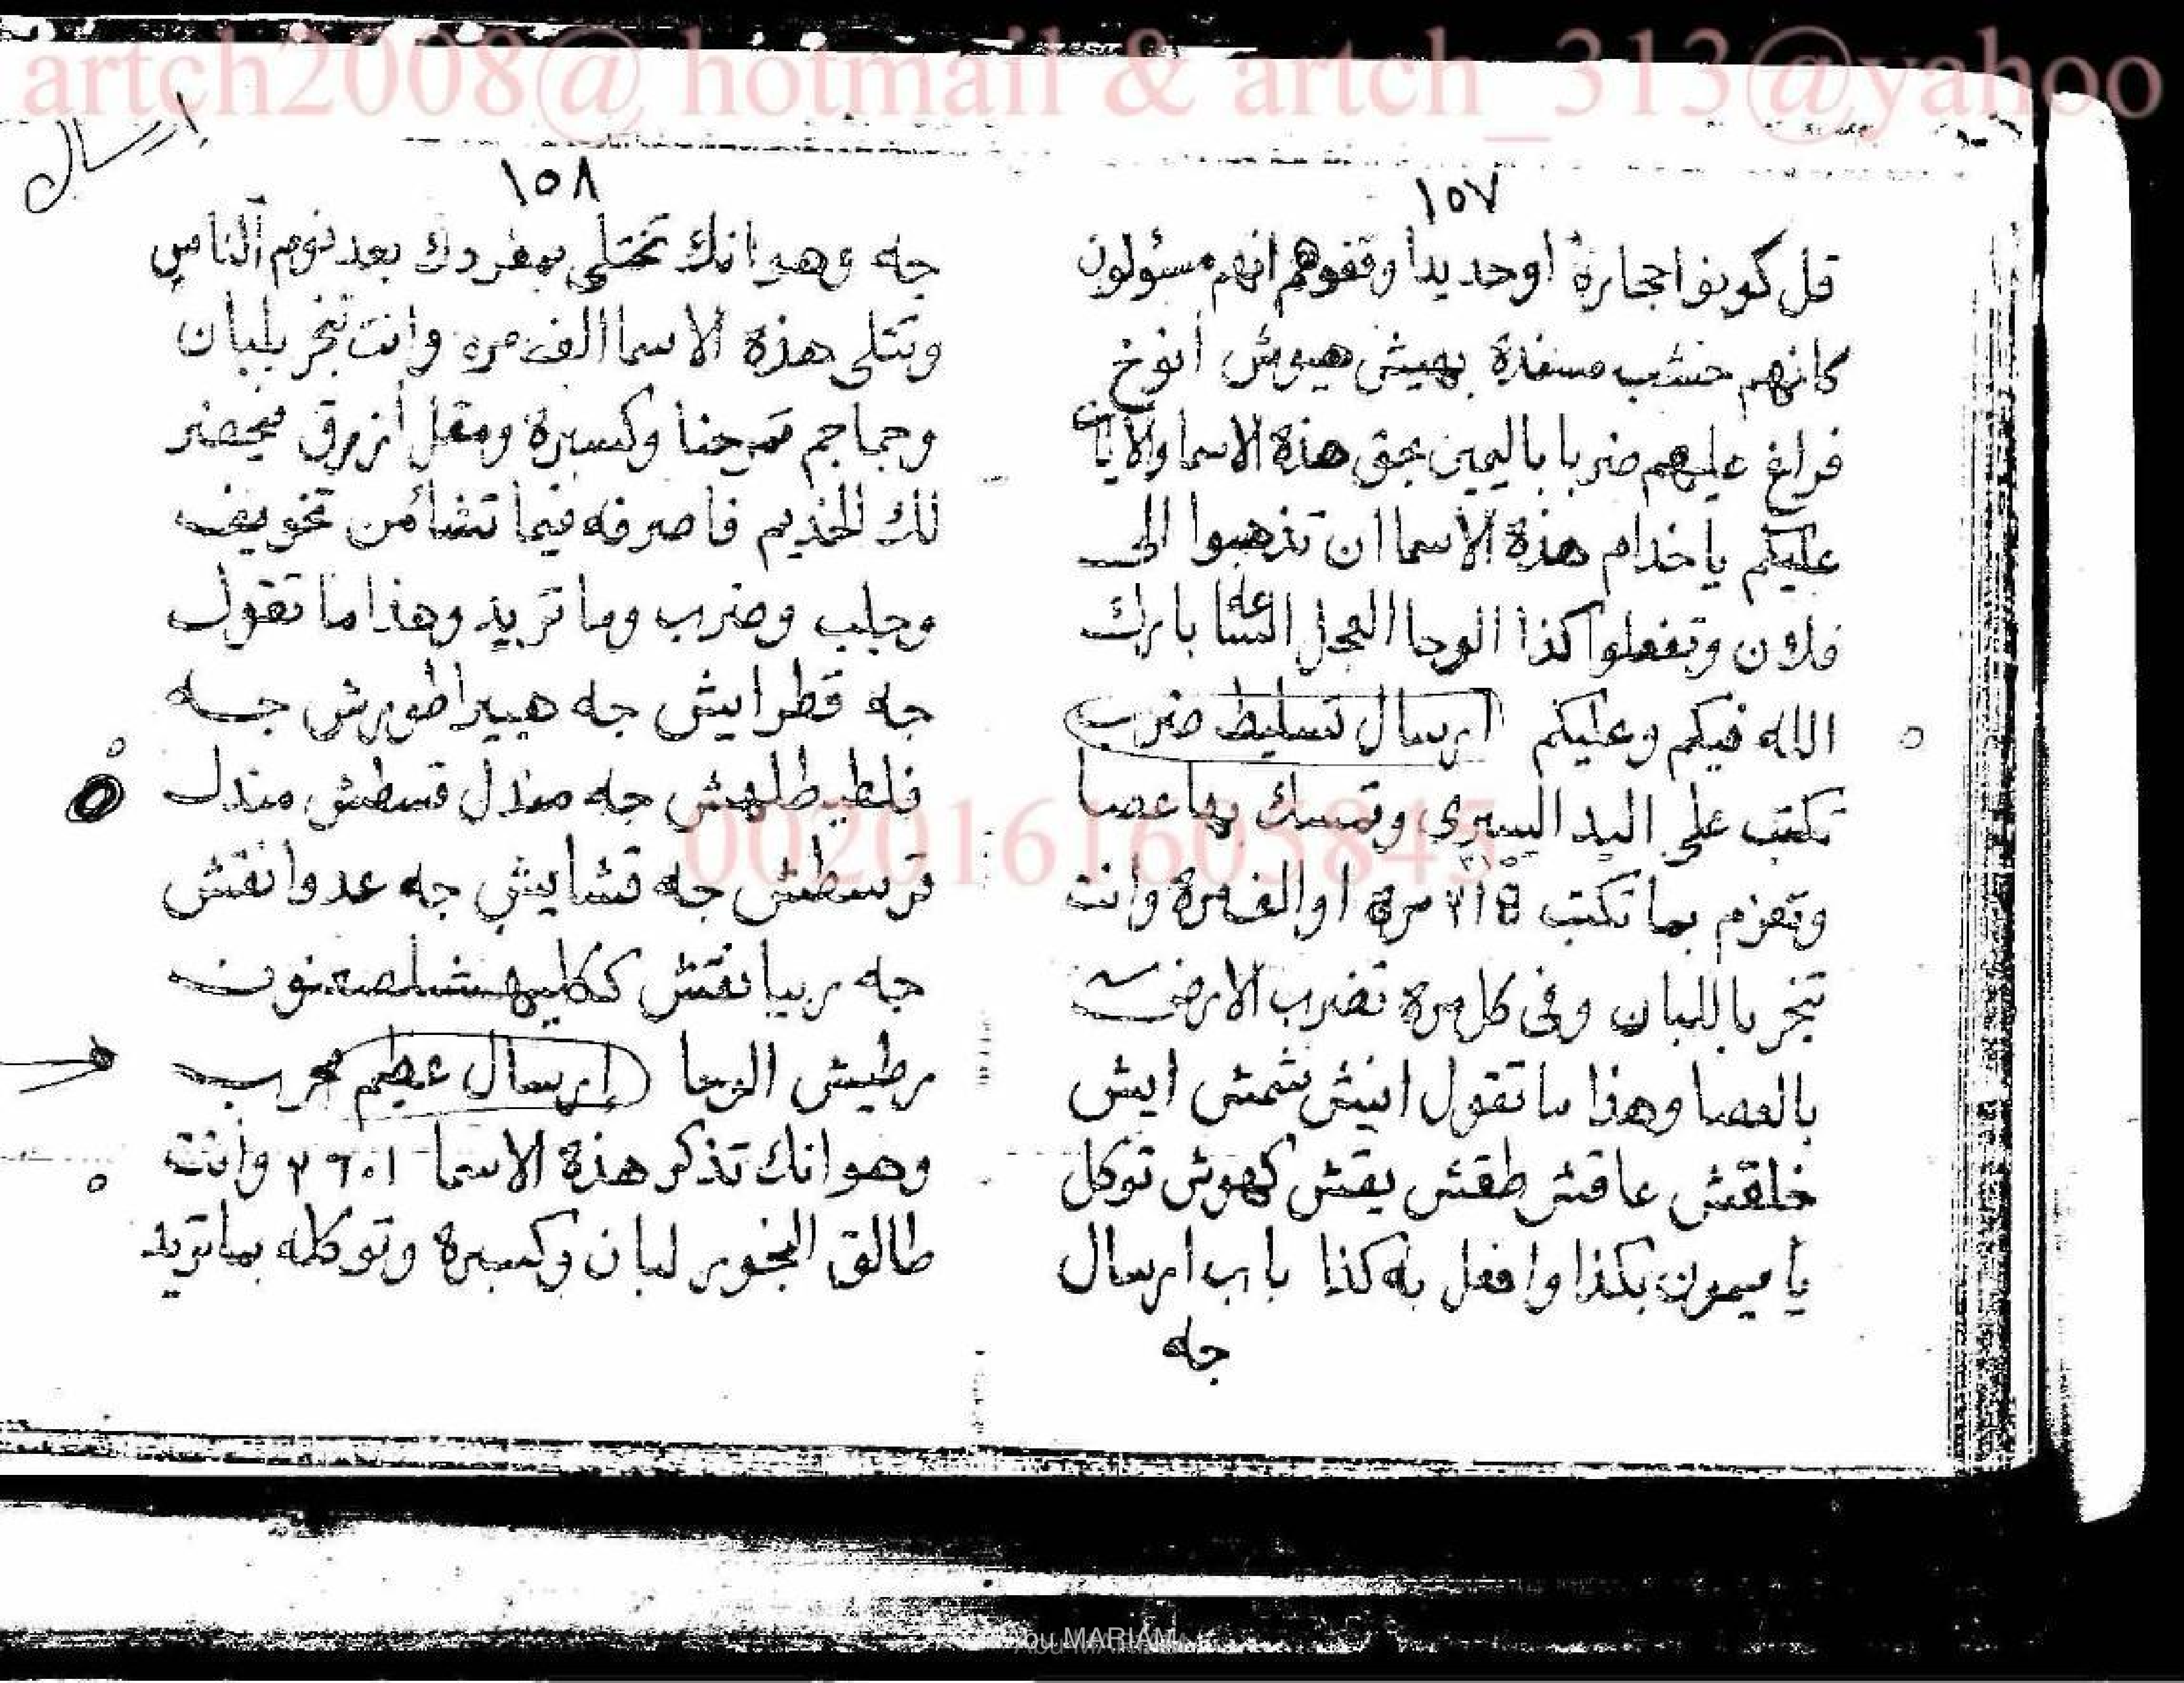 artch2008@ hotmail & artch_313@yahoo
١٥٧
قل كونوا حجارة اوحديدا وقفوهم انهم مسئولون
كانهم خشب مسندة بهيش هيوش أنوخ
فراغ عليهم ضربا باليمين بحق هذة الاسما والايات
عليكم ياخدام هذة الاسما ان تذهبوا الى
فلان وتفعلوا كذا الوحا العجل الساعه بارك
الله فيكم وعليكم ارسال تسليط ضرب
تكتب على اليد اليسرى وتمسك بها عصا
وتعزم بما تكتب مرة اوالف مرة وانت
تبخر باللبان وفى كل مرة تضرب الارض
بالعصا وهذا ما تقول انيش شمش ايش
خلقش عاقش طقش يقش كهوش توكل
يا ميمون بكذا وافعل به كذا باب ارسال
جله
ارسال
١٥٨
جله وهو انك تختلى بمفردك بعد نوم الناس
وتتلى هذة الاسما الف مره وانت تبخر بلبان
وجماجم تمرحنا وكسبرة ومقل أزرق فيحضر
لك الخديم فاصرفه فيما تشأ من تخويف
وجلب وضرب وما تريد وهذا ما تقول
جله قطرايش جله هبيراطورش جله
فلطيطلهش جله مندل قسطش مندل
قرسطش جله قشايش جله عدوانقش
جله ربيانقش
مرطيش الوحا ارسال عظيم مجرب
وهو انك تذكر هذة الاسما وانت
طالق البخور لبان وكسبرة وتوكله بما تريد
0020161603845
Abu MARIAM